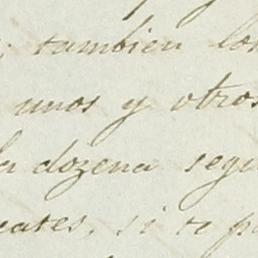 tambien los
unos y otros
la dozena segu
cates, si se p